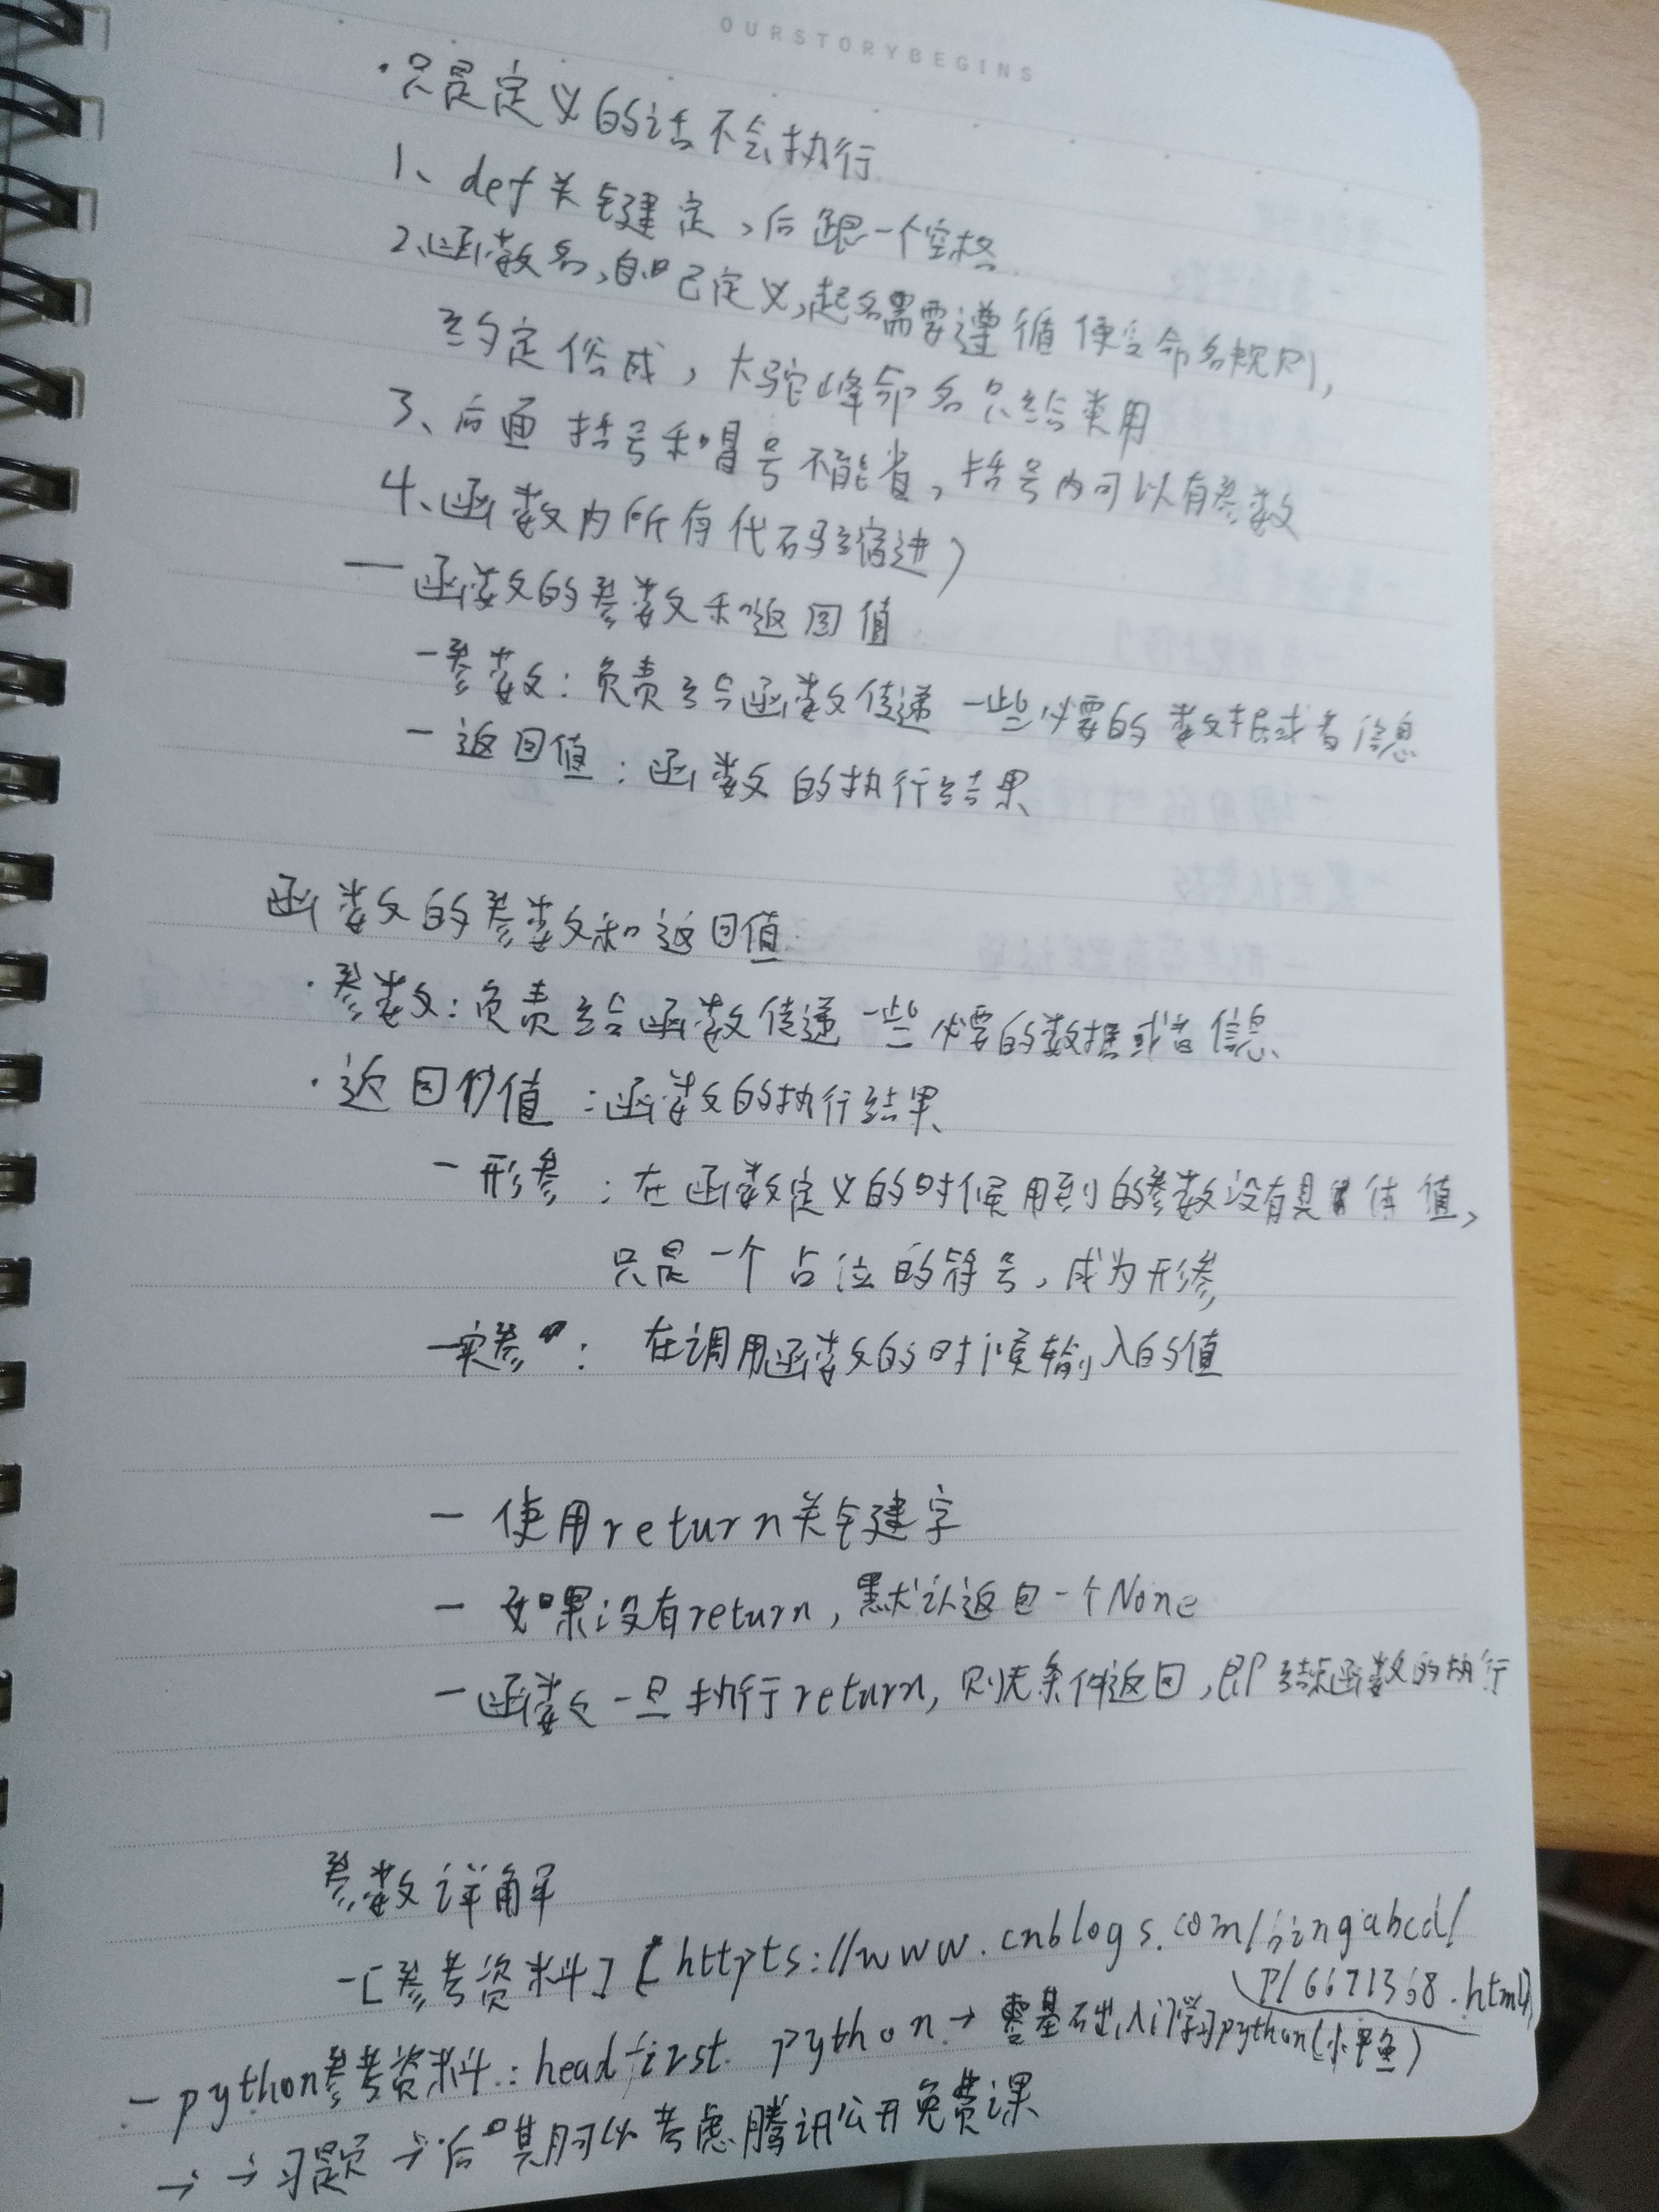 OURSTORYBEGINS
·只是定义的话不会执行
1、def关键定,后跟一个空格
2、函数名,自己定义,起名需要遵循便名命名规则,
约定俗成,大驼峰命名只给类用
3、后面括号和冒号不能省,括号内可以有参数
4、函数内所有代码缩进)
一函数的参数和返回值
-参数:负责给函数传递一些必要的数据或者信息
-返回值:函数的执行结果
函数的参数和返回值
·参数:负责给函数传递一些必要的数据或者信息
·返回值:函数的执行结果
-形参:在函数定义的时候用到的参数没有具体值,
只是一个占位的符号,成为形参
-实参:在调用函数的时候输入的值
- 使用return关键字
- 如果没有return,默认返回一个None
-函数一旦执行return,则无条件返回,即结束函数的执行
参数详解
-[参考资料][https://www.cnblogs.com/bingabcd/
p/6671368.html]
-python参考资料:headfirst python→零基础入门学习python(小甲鱼)
→→习题→后期可以考虑腾讯公开免费课